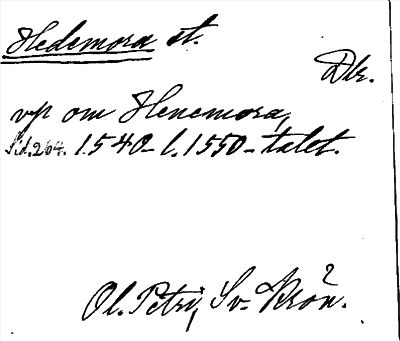 Hedemora st.
Dlr.
vp om Henemora,
Sid. 264. 1.540- l. 1550-talet.
Ol. Petri, Sv. Krön.